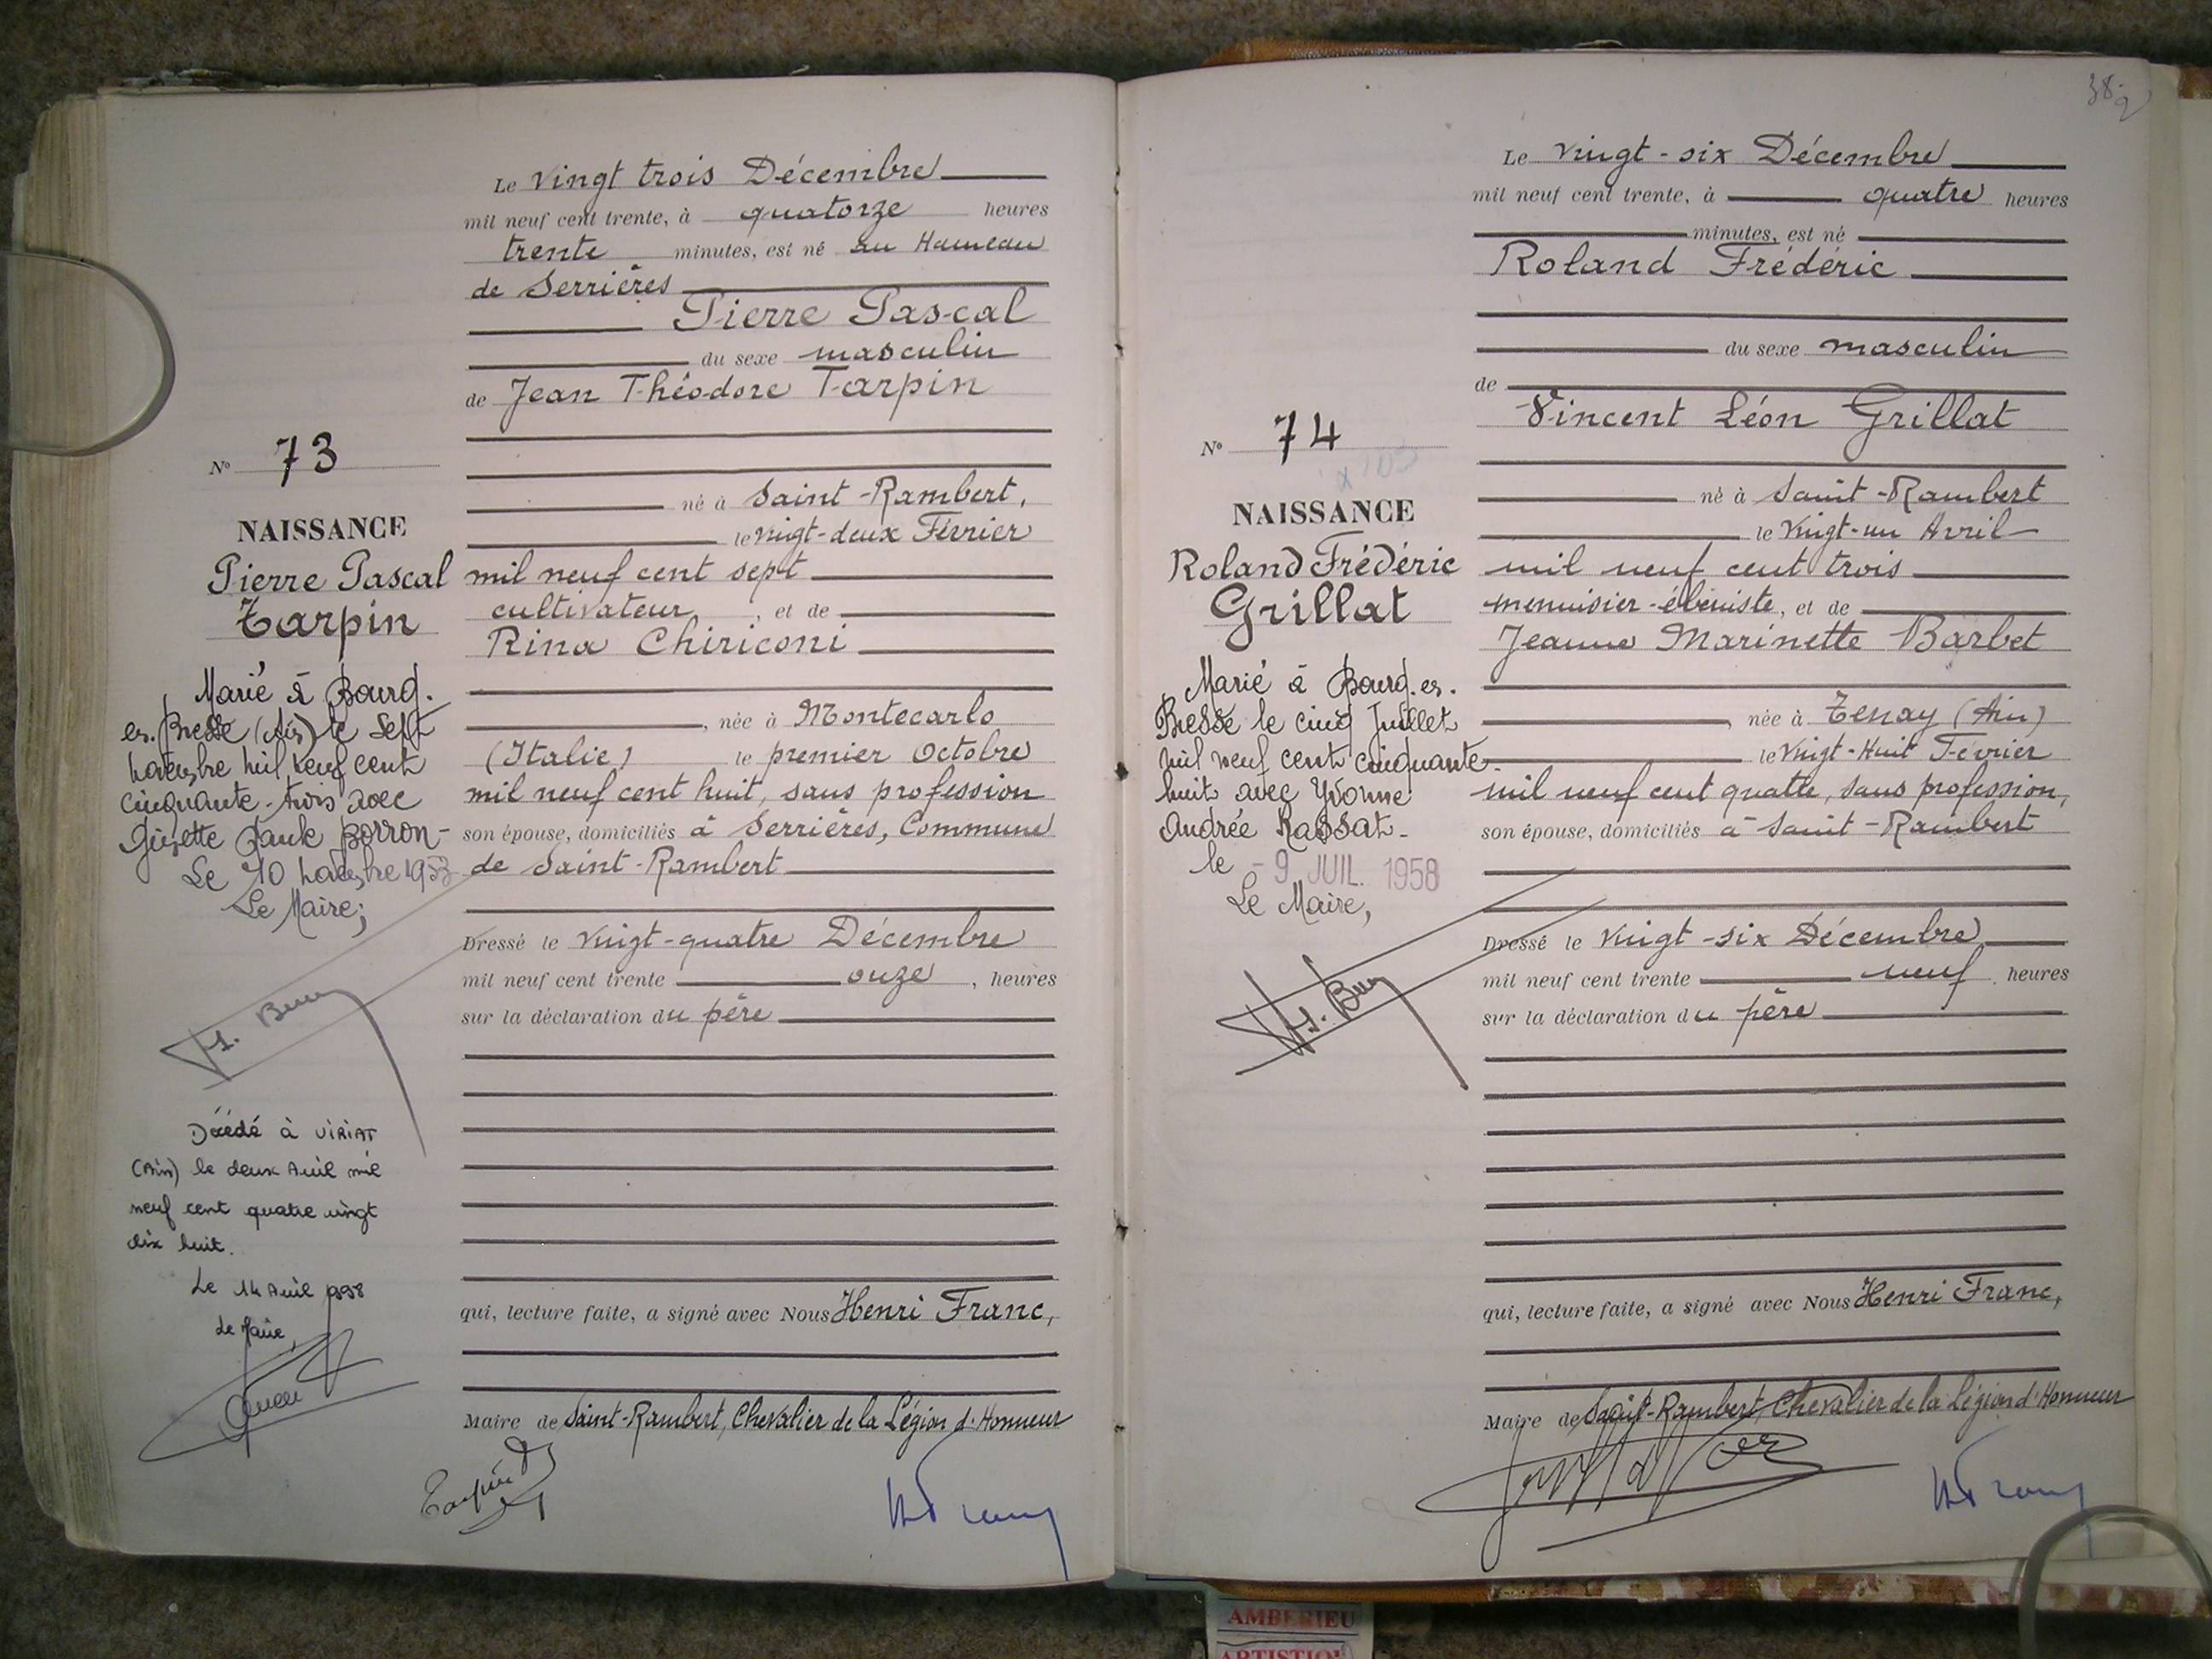 Le Vingt trois Décembre
mil neuf cent trente, à quatorze heures
trente minutes, est né au Hameau
de Serrières
Pierre Pascal
du sexe masculin
de Jean Théodore Tarpin
né à Saint-Rambert,
le vingt-deux Février
mil neuf cent sept
cultivateur, et de
Rina Chiriconi
, née à Montecarlo
(Italie) le premier Octobre
mil neuf cent huit, sans profession
son épouse, domiciliés à Serrières, Commune
de Saint-Rambert
Dressé le vingt-quatre Décembre
mil neuf cent trente onze, heures
sur la déclaration du père
qui, lecture faite, a signé avec Nous Henri Franc,
Maire de Saint-Rambert, Chevalier de la Légion d'Honneur
Tarpin
HFranc
No 73
NAISSANCE
Pierre Pascal
Tarpin
Marié à Bourg-
en-Bresse (Ain) le sept
novembre mil neuf cent
cinquante-trois avec
Borron-
Le 10 novembre 1953
Le Maire;
Décédé à VIRIAT
(Ain) le deux Avril mil
neuf cent quatre vingt
dix huit.
Le 14 Avril 1998
Le Maire,
38-2
Le Vingt-six Décembre
mil neuf cent trente, à quatre heures
minutes, est né
Roland Frédéric
du sexe masculin
de
Vincent Léon Grillat
né à Saint-Rambert
le Vingt-un Avril
mil neuf cent trois
menuisier-ébéniste, et de
Jeanne Marinette Barbet
, née à Tenay (Ain)
le Vingt-Huit Février
mil neuf cent quatre, sans profession,
son épouse, domiciliés à Saint-Rambert
Dressé le Vingt-six Décembre
mil neuf cent trente neuf, heures
sur la déclaration du père
qui, lecture faite, a signé avec Nous Henri Franc,
Maire de Saint-Rambert, Chevalier de la Légion d'Honneur
HFranc
No 74
NAISSANCE
Roland Frédéric
Grillat
Marié à Bourg-en-
Bresse le cinq Juillet
mil neuf cent cinquante-
huit avec Yvonne
Andrée Rassat-
le -9 JUIL. 1958
Le Maire,
AMBERIEU